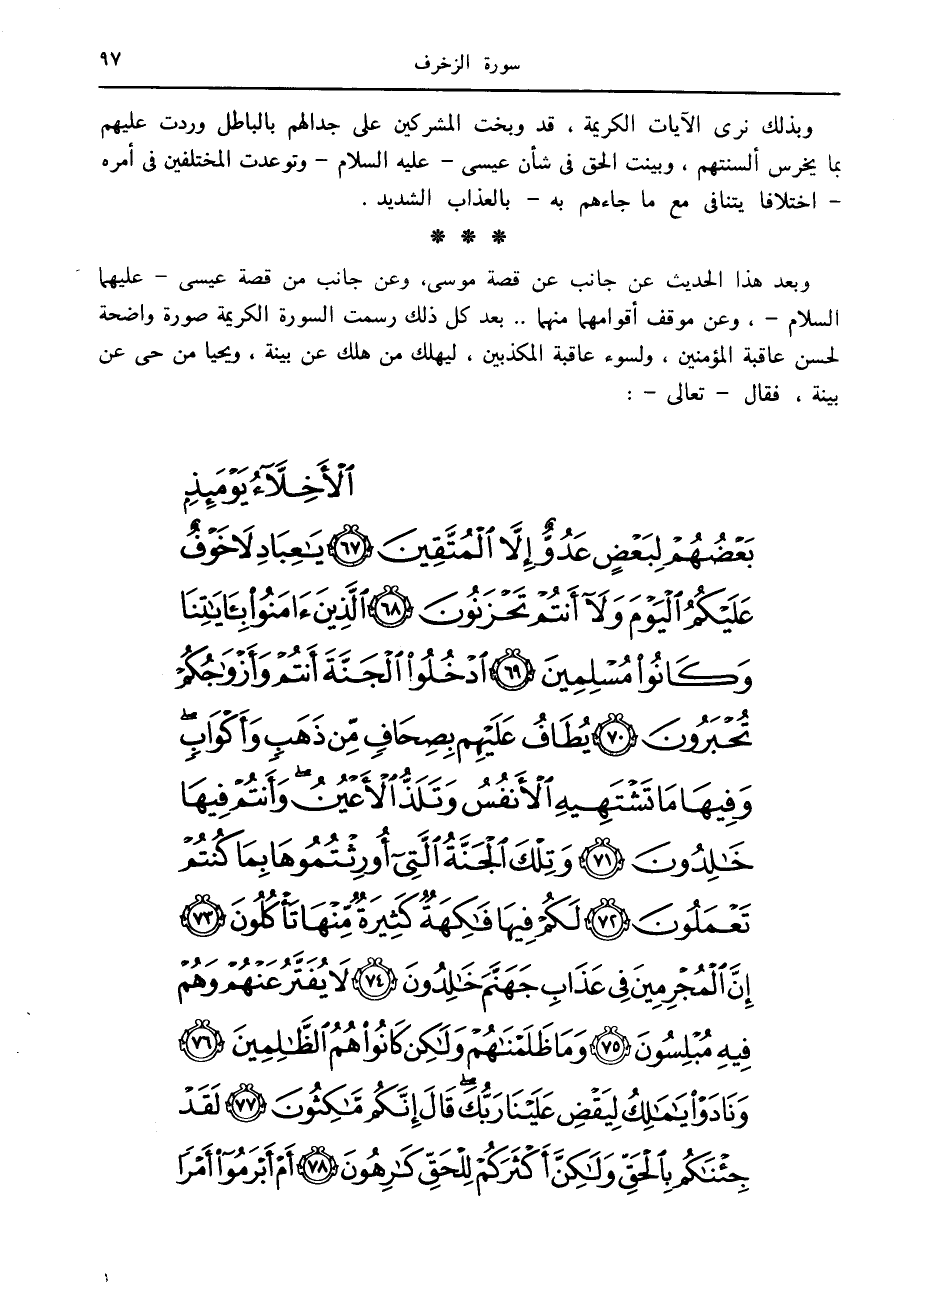 سورة الزخرف ٩٧
وبذلك نرى الآيات الكريمة ، قد وبخت المشركين على جدالهم بالباطل وردت عليهم
بما يخرس ألسنتهم ، وبينت الحق فى شأن عيسى - عليه السلام - وتوعدت المختلفين فى أمره
- اختلافا يتنافى مع ما جاءهم به - بالعذاب الشديد .
* * *
وبعد هذا الحديث عن جانب عن قصة موسى، وعن جانب من قصة عيسى - عليهما
السلام - ، وعن موقف أقوامهما منهما .. بعد كل ذلك رسمت السورة الكريمة صورة واضحة
لحسن عاقبة المؤمنين ، ولسوء عاقبة المكذبين ، ليهلك من هلك عن بينة ، ويحيا من حى عن
بينة ، فقال - تعالى - :
ٱلْأَخِلَّآءُ يَوْمَئِذٍۭ
بَعْضُهُمْ لِبَعْضٍ عَدُوٌّ إِلَّا ٱلْمُتَّقِينَ ٦٧ يَٰعِبَادِ لَا خَوْفٌ
عَلَيْكُمُ ٱلْيَوْمَ وَلَآ أَنتُمْ تَحْزَنُونَ ٦٨ ٱلَّذِينَ ءَامَنُوا۟ بِـَٔايَٰتِنَا
وَكَانُوا۟ مُسْلِمِينَ ٦٩ ٱدْخُلُوا۟ ٱلْجَنَّةَ أَنتُمْ وَأَزْوَٰجُكُمْ
تُحْبَرُونَ ٧٠ يُطَافُ عَلَيْهِم بِصِحَافٍ مِّن ذَهَبٍ وَأَكْوَابٍ ۖ
وَفِيهَا مَا تَشْتَهِيهِ ٱلْأَنفُسُ وَتَلَذُّ ٱلْأَعْيُنُ ۖ وَأَنتُمْ فِيهَا
خَٰلِدُونَ ٧١ وَتِلْكَ ٱلْجَنَّةُ ٱلَّتِىٓ أُورِثْتُمُوهَا بِمَا كُنتُمْ
تَعْمَلُونَ ٧٢ لَكُمْ فِيهَا فَٰكِهَةٌ كَثِيرَةٌ مِّنْهَا تَأْكُلُونَ ٧٣
إِنَّ ٱلْمُجْرِمِينَ فِى عَذَابِ جَهَنَّمَ خَٰلِدُونَ ٧٤ لَا يُفَتَّرُ عَنْهُمْ وَهُمْ
فِيهِ مُبْلِسُونَ ٧٥ وَمَا ظَلَمْنَٰهُمْ وَلَٰكِن كَانُوا۟ هُمُ ٱلظَّٰلِمِينَ ٧٦
وَنَادَوْا۟ يَٰمَٰلِكُ لِيَقْضِ عَلَيْنَا رَبُّكَ ۖ قَالَ إِنَّكُم مَّٰكِثُونَ ٧٧ لَقَدْ
جِئْنَٰكُم بِٱلْحَقِّ وَلَٰكِنَّ أَكْثَرَكُمْ لِلْحَقِّ كَٰرِهُونَ ٧٨ أَمْ أَبْرَمُوٓا۟ أَمْرًا
١